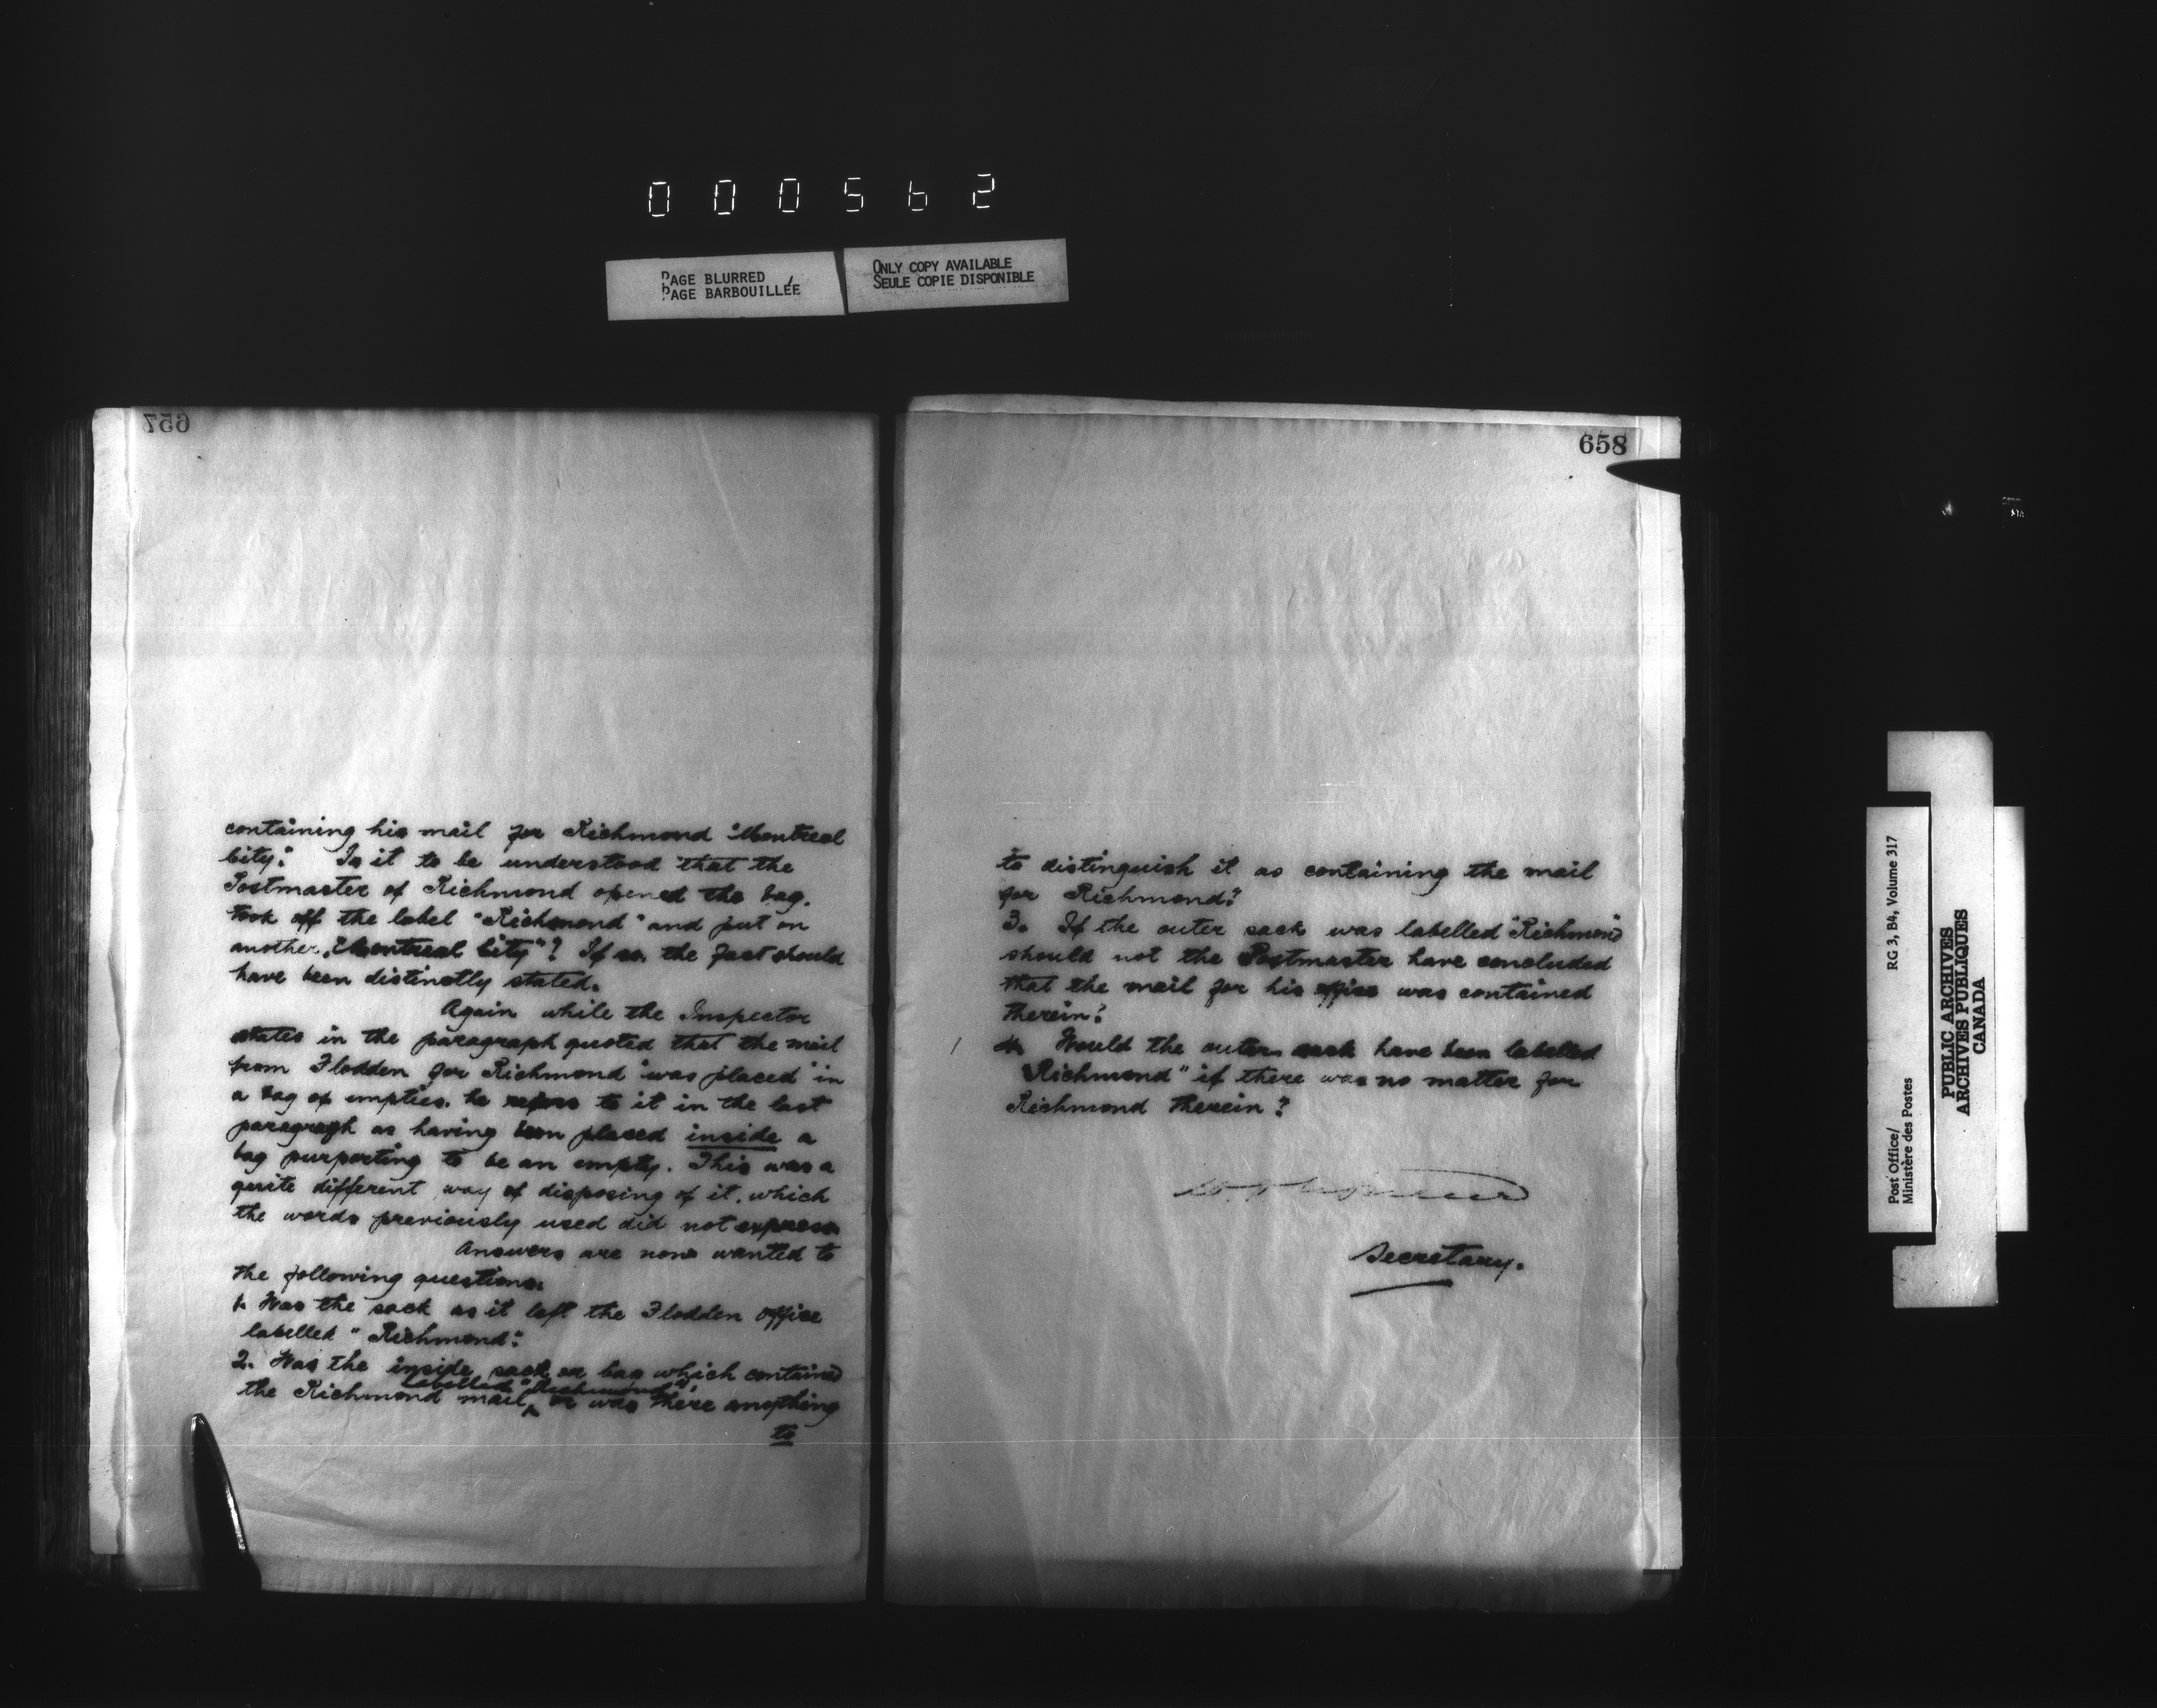 000562
PAGE BLURRED
PAGE BARBOUILLÉE
ONLY COPY AVAILABLE
SEULE COPIE DISPONIBLE
657
containing his mail for Richmond "Montreal
City". Is it to be understood that the
Postmaster of Richmond opened the bag,
took off the label "Richmond" and put on
another, "Montreal City"? If so, the fact should
have been distinctly stated.
Again while the Inspector
states in the paragraph quoted that the mail
from Flodden for Richmond "was placed" in
a bag of empties, he refers to it in the last
paragraph as having been placed inside a
bag purporting to be an empty. This was a
quite different way of disposing of it, which
the words previously used did not express.
Answers are now wanted to
the following questions.
1. Was the sack as it left the Flodden office
labelled "Richmond".
2. Was the inside sack or bag which contained
labelled "Richmond",
the Richmond mail, or was there anything
to
658
to distinguish it as containing the mail
for Richmond?
3. If the outer sack was labelled "Richmond"
should not the Postmaster have concluded
that the mail for his office was contained
therein?
4. Would the outer sack have been labelled
"Richmond" if there was no matter for
Richmond therein?
Secretary.
Post Office/
Ministère des Postes
RG 3, B4, Volume 317
PUBLIC ARCHIVES
ARCHIVES PUBLIQUES
CANADA